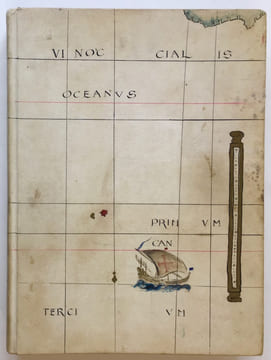 VI NOC CIAL IS
OCEANVS
PRIM VM
CAN
TERCI VM